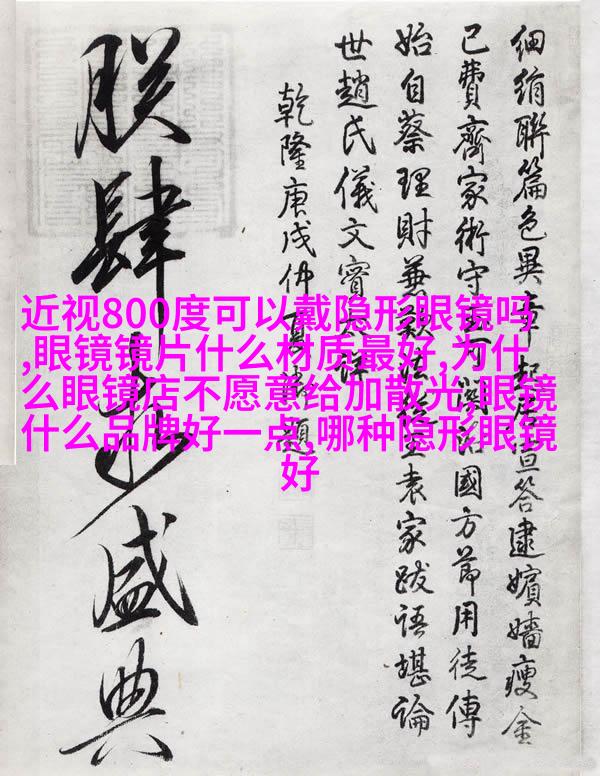 近视800度可以戴隐形眼镜吗
,眼镜镜片什么材质最好,为什
么眼镜店不愿意给加散光,眼镜
什么品牌好一点,哪种隐形眼镜
好
細綃聯篇色異章起居宣答逮嬪嬙瘦金
已費齊家術守治國方節用徒傳
始自蔡理財兼歎袁家跋語堪論
世趙氏儀文
乾隆庚戌仲夏題
肆盛典